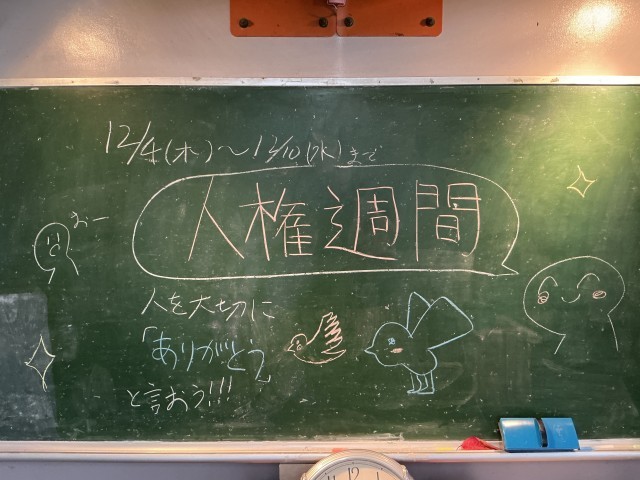 12/4(木)～12/10(水)まで
人権週間
おー
人を大切に
「ありがとう」
と言おう!!!
12